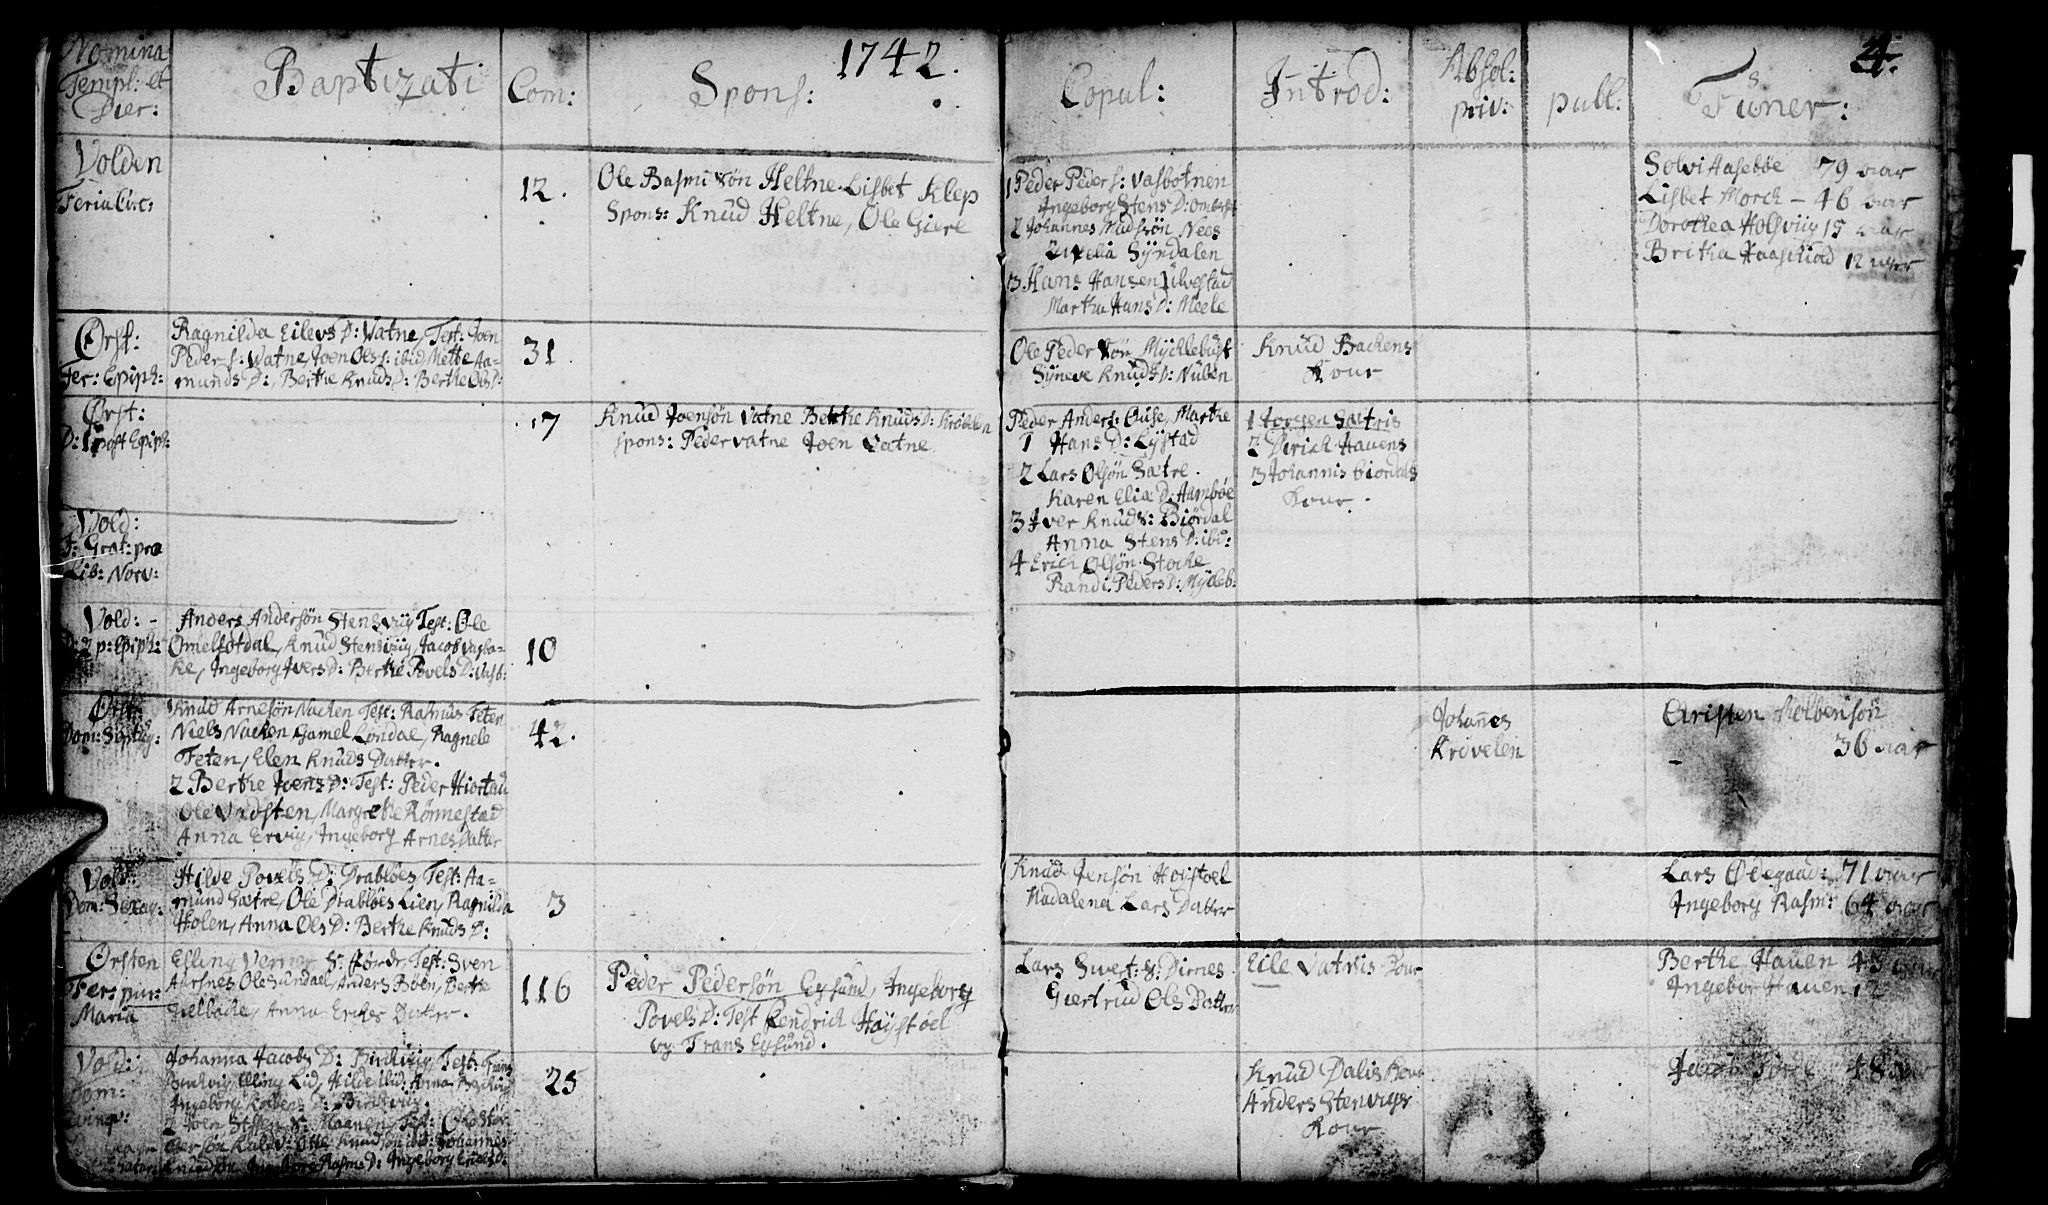 Nomina Templ: et Dier:
Baptizati
Com:
Spons:
1742.
Copul:
Introd:
Absol: priv:
publ:
Funer:
4.
Volden
Feria Circ:
12.
Ole Rasmusøn Heltne. Lisbet Klep
Spons: Knud Heltne, Ole Giere
1 Peder Peders: Vasbotnen
Ingeborg Stens D:
2 Johannes Madssøn Nees
Syndalen
3 Hans Hansen Ulvestad
Martha Hans D: Meele
Solvi Aasebøe 79 aar
Lisbet Morch - 46 aar
Dorothea Holsviig 15 aar
Britha Haaskiold 12 uger
Ørst:
Fer: Epiph:
Ragnilda Eilevs D: Vatne, Test: Joen
Peder S: Vatne, Joen Ols S: ibid Mette Aa-
munds D:, Berthe Knuds D: Berthe Ols D:
31.
Ole Pedersøn Mycklebust
Syneve Knuds D: Nuben
Knud Backens
Kone
Ørst:
D: 1 post Epiph:
7
Knud Joensøn Vatne Berthe Knuds D: Krøvelen
spons: Peder Vatne Joen Vatne
Peder Anders: Ause, Marthe
1 Hans D: Lystad
2 Lars Olsøn Sætre.
Karen Eliæ D: Aambøe
3 Iver Knuds: Biørdal
Anna Stens D: ibd:
4 Erich Olsøn Stocke
Randi Peders D: Mÿcleb:
1 Jørgen Sætris
2 Dirich Hauens
3 Johannis Giordals
Kone.
Vold:
F: Grat: pro
Lib: Norv:
Vold: -
D: 2 p: Epiph:
Anders Andersøn Stensviig Test: Ole
Omelfotdal, Knud Stensviig, Jacob Vasba-
ke, Ingeborg Ivers D: Berthe Povels D: Vasb:
10
Ørst:
Dom: Septuag:
Knud Arnesøn Nacken Test: Rasmus Feten
Niels Nacken Gamel Londal, Ragnele
Feten, Elen Knuds Datter.
2 Berthe Joens D: Test: Peder Hiortdal
Ole Vadsten, Margrethe Rønnestad
Anna Ervig, Ingeborg Arnes Datter
42.
Johannes
Krøvelen
Christen Kolbensøn
36 aar
Vold:
Dom: Sexag:
Hilde Povels D: Drabløes Test: Aa-
mund Sætre, Ole Drabløes Lien, Ragnilda
Holen, Anna Ols D: Berthe Knuds D:
3
Knud Jensøn Høistøel
Madalena Lars Datter
Lars Ødegaard: 71 aar
Ingeborg Rasm: 64 aar
Ørsten
Fer: pur:
Maria
Esling Verner S: Førde Test: Sven
Aarsnes Ole Sundal, Anders Boen, Berthe
Fielbache, Anna Erches Datter.
116
Peder Pedersøn Eysund, Ingeborg
Povels D: Test Hendrich Høystøel
og Frans Eysund.
Lars Swert: S: Dirnes
Giertrud Ols Datter
Eile Vatnis Kone
Berthe Hauen 43
Ingebor Hauen 12
Vold:
Dom:
Johanna Jacobs D: Birckviig Test: Frans
Birckviig, Elling Lid, Hilde ibid: Anna Birckviig
Ingeborg D: Birckviig.
2 Joen Steen S: Maanen, Test:
Knudsøn ibid: Johannes
Knudsøn, Ingeborg Rasm: D: Ingeborg Eriks D:
25
Knud Dalis Kone
Anders Stenvigs
Kone
Jacob 48 aar